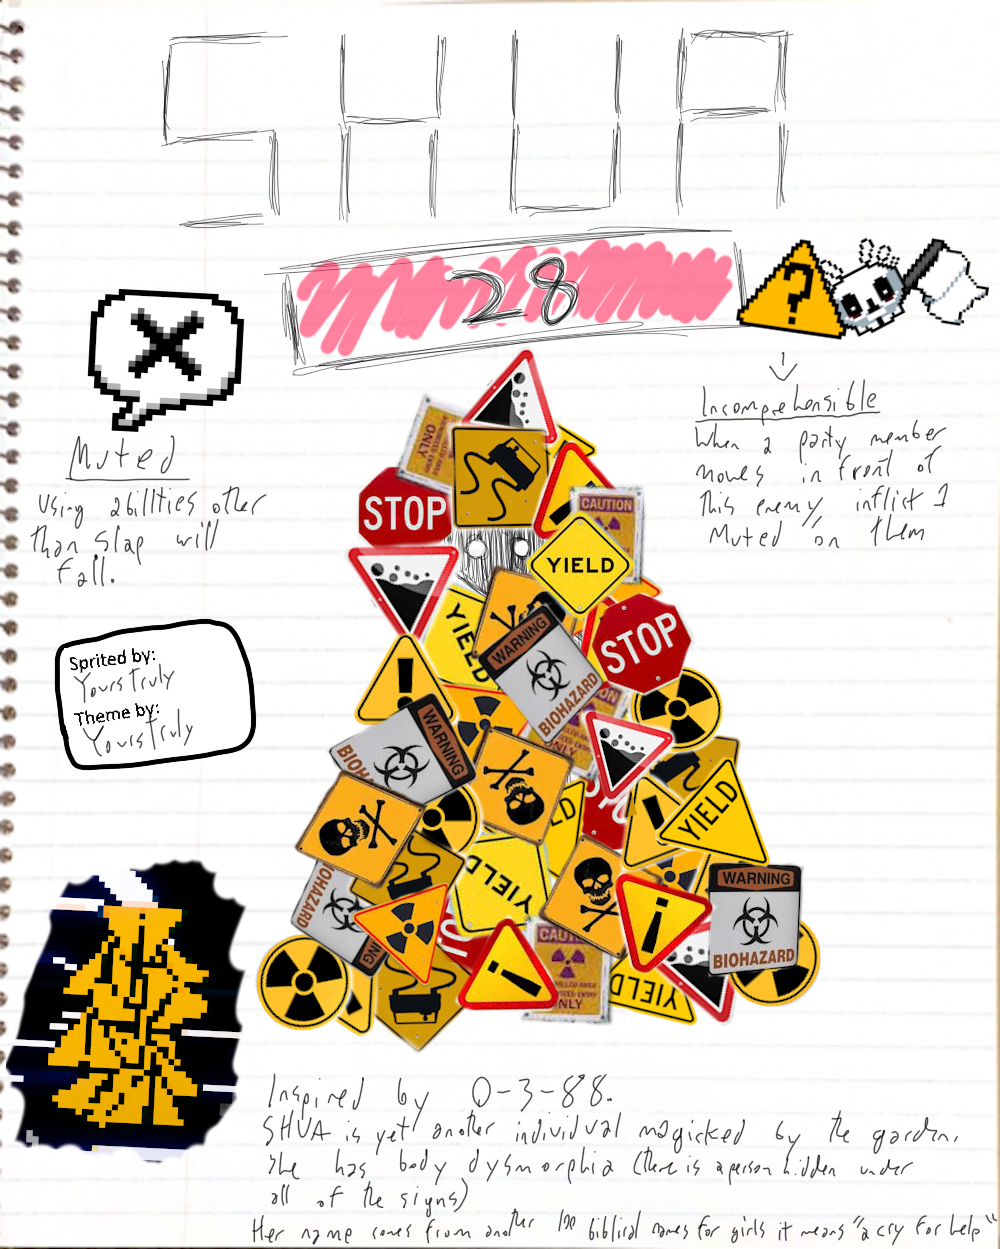 SHUA
28
?
Muted
Using abillities other
than Slap will
fail.
Incomprehensible
When a party member
moves in front of
this enemy, inflict 1
Muted on them
Sprited by:
Yours Truly
Theme by:
Yours Truly
ONLY
STOP
CAUTION
YIELD
YIELD
WARNING
BIOHAZARD
STOP
WARNING
BIOH
ONLY
YIELD
LD
YIELD
BIOHAZARD
WARNING
BIOHAZARD
CAUTION
ONLY
YIELD
Inspired by 0-3-88.
SHUA is yet another individual magicked by the garden.
She has body dysmorphia (there is a person hidden under
all of the signs)
Her name comes from another 100 biblical names for girls it means "a cry for help"